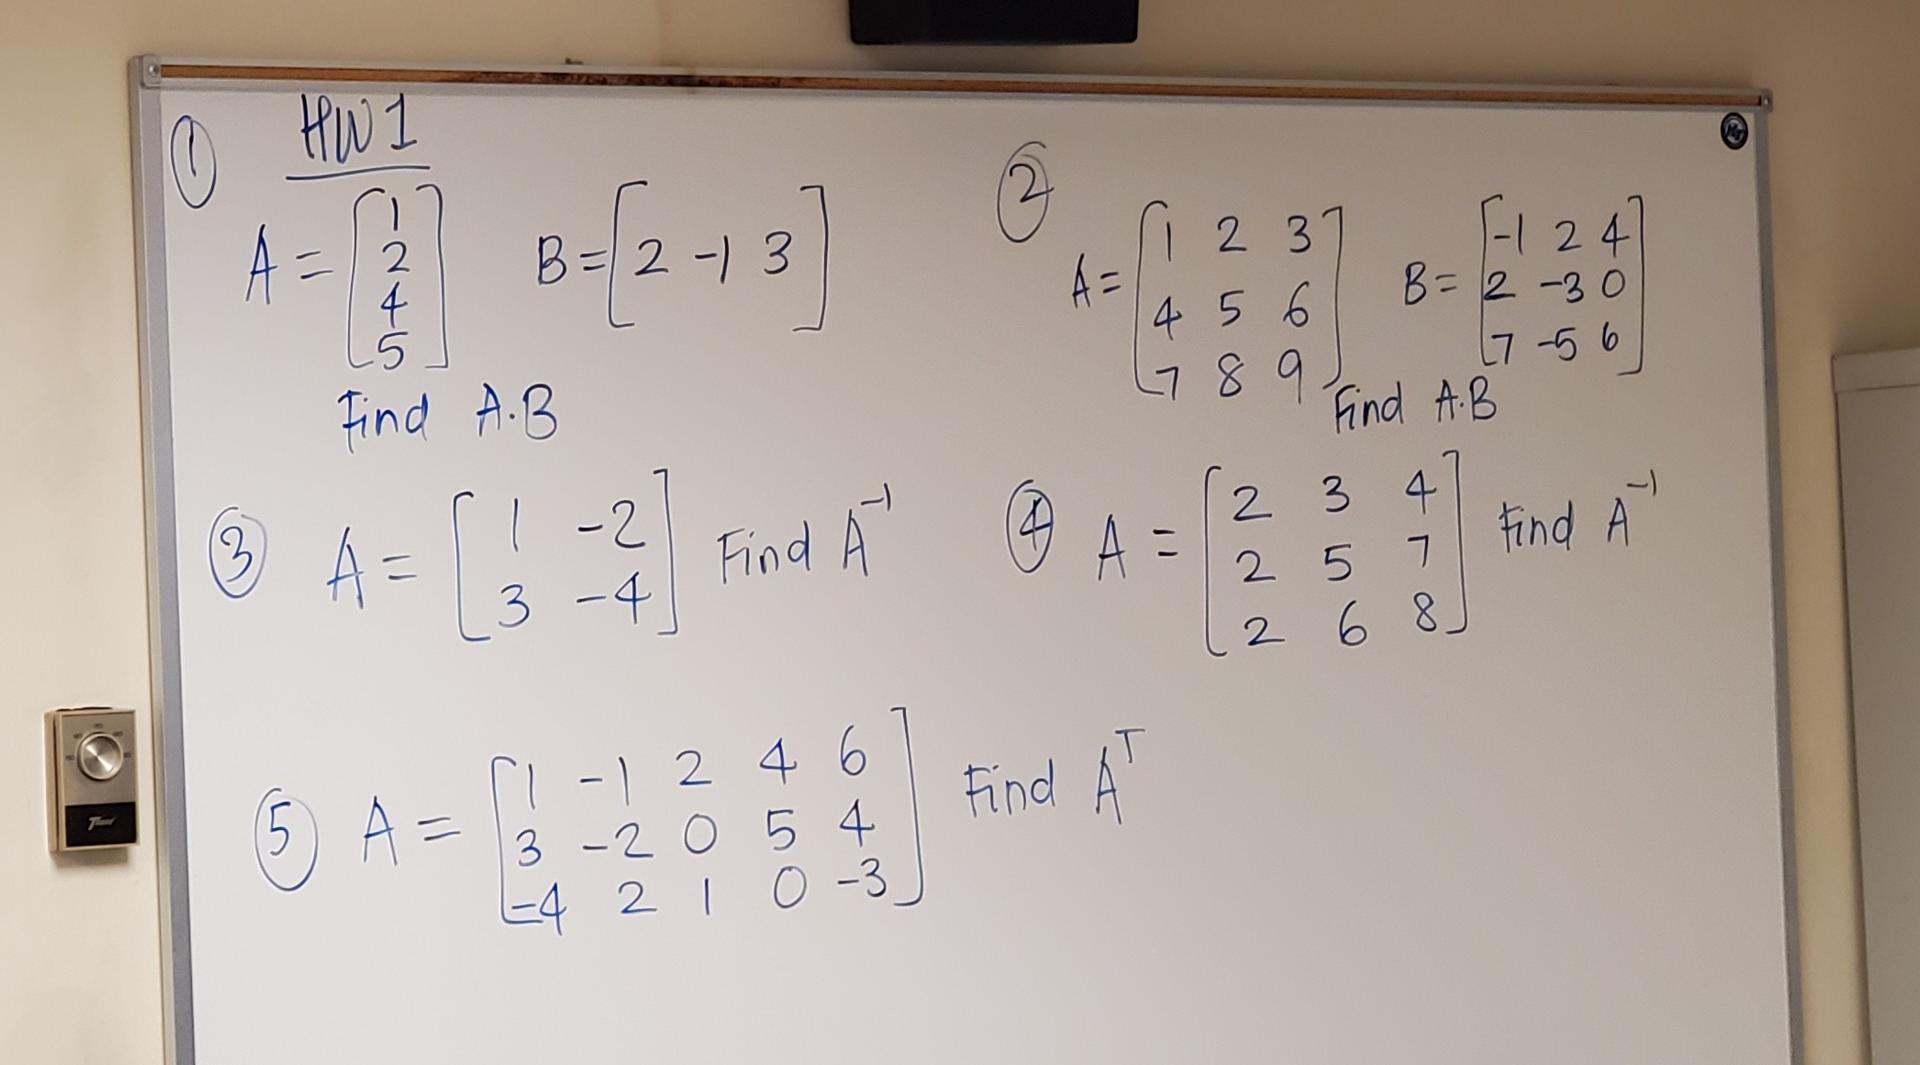 HW1
①
A = [1 2 4 5] B = [2 -1 3]
Find A.B
②
A = [1 2 3
4 5 6
7 8 9]
B = [-1 2 4
2 -3 0
7 -5 6]
Find A.B
③ A = [1 -2
3 -4] Find A⁻¹
④ A = [2 3 4
2 5 7
2 6 8] Find A⁻¹
⑤ A = [1 -1 2 4 6
3 -2 0 5 4
-4 2 1 0 -3] Find Aᵀ